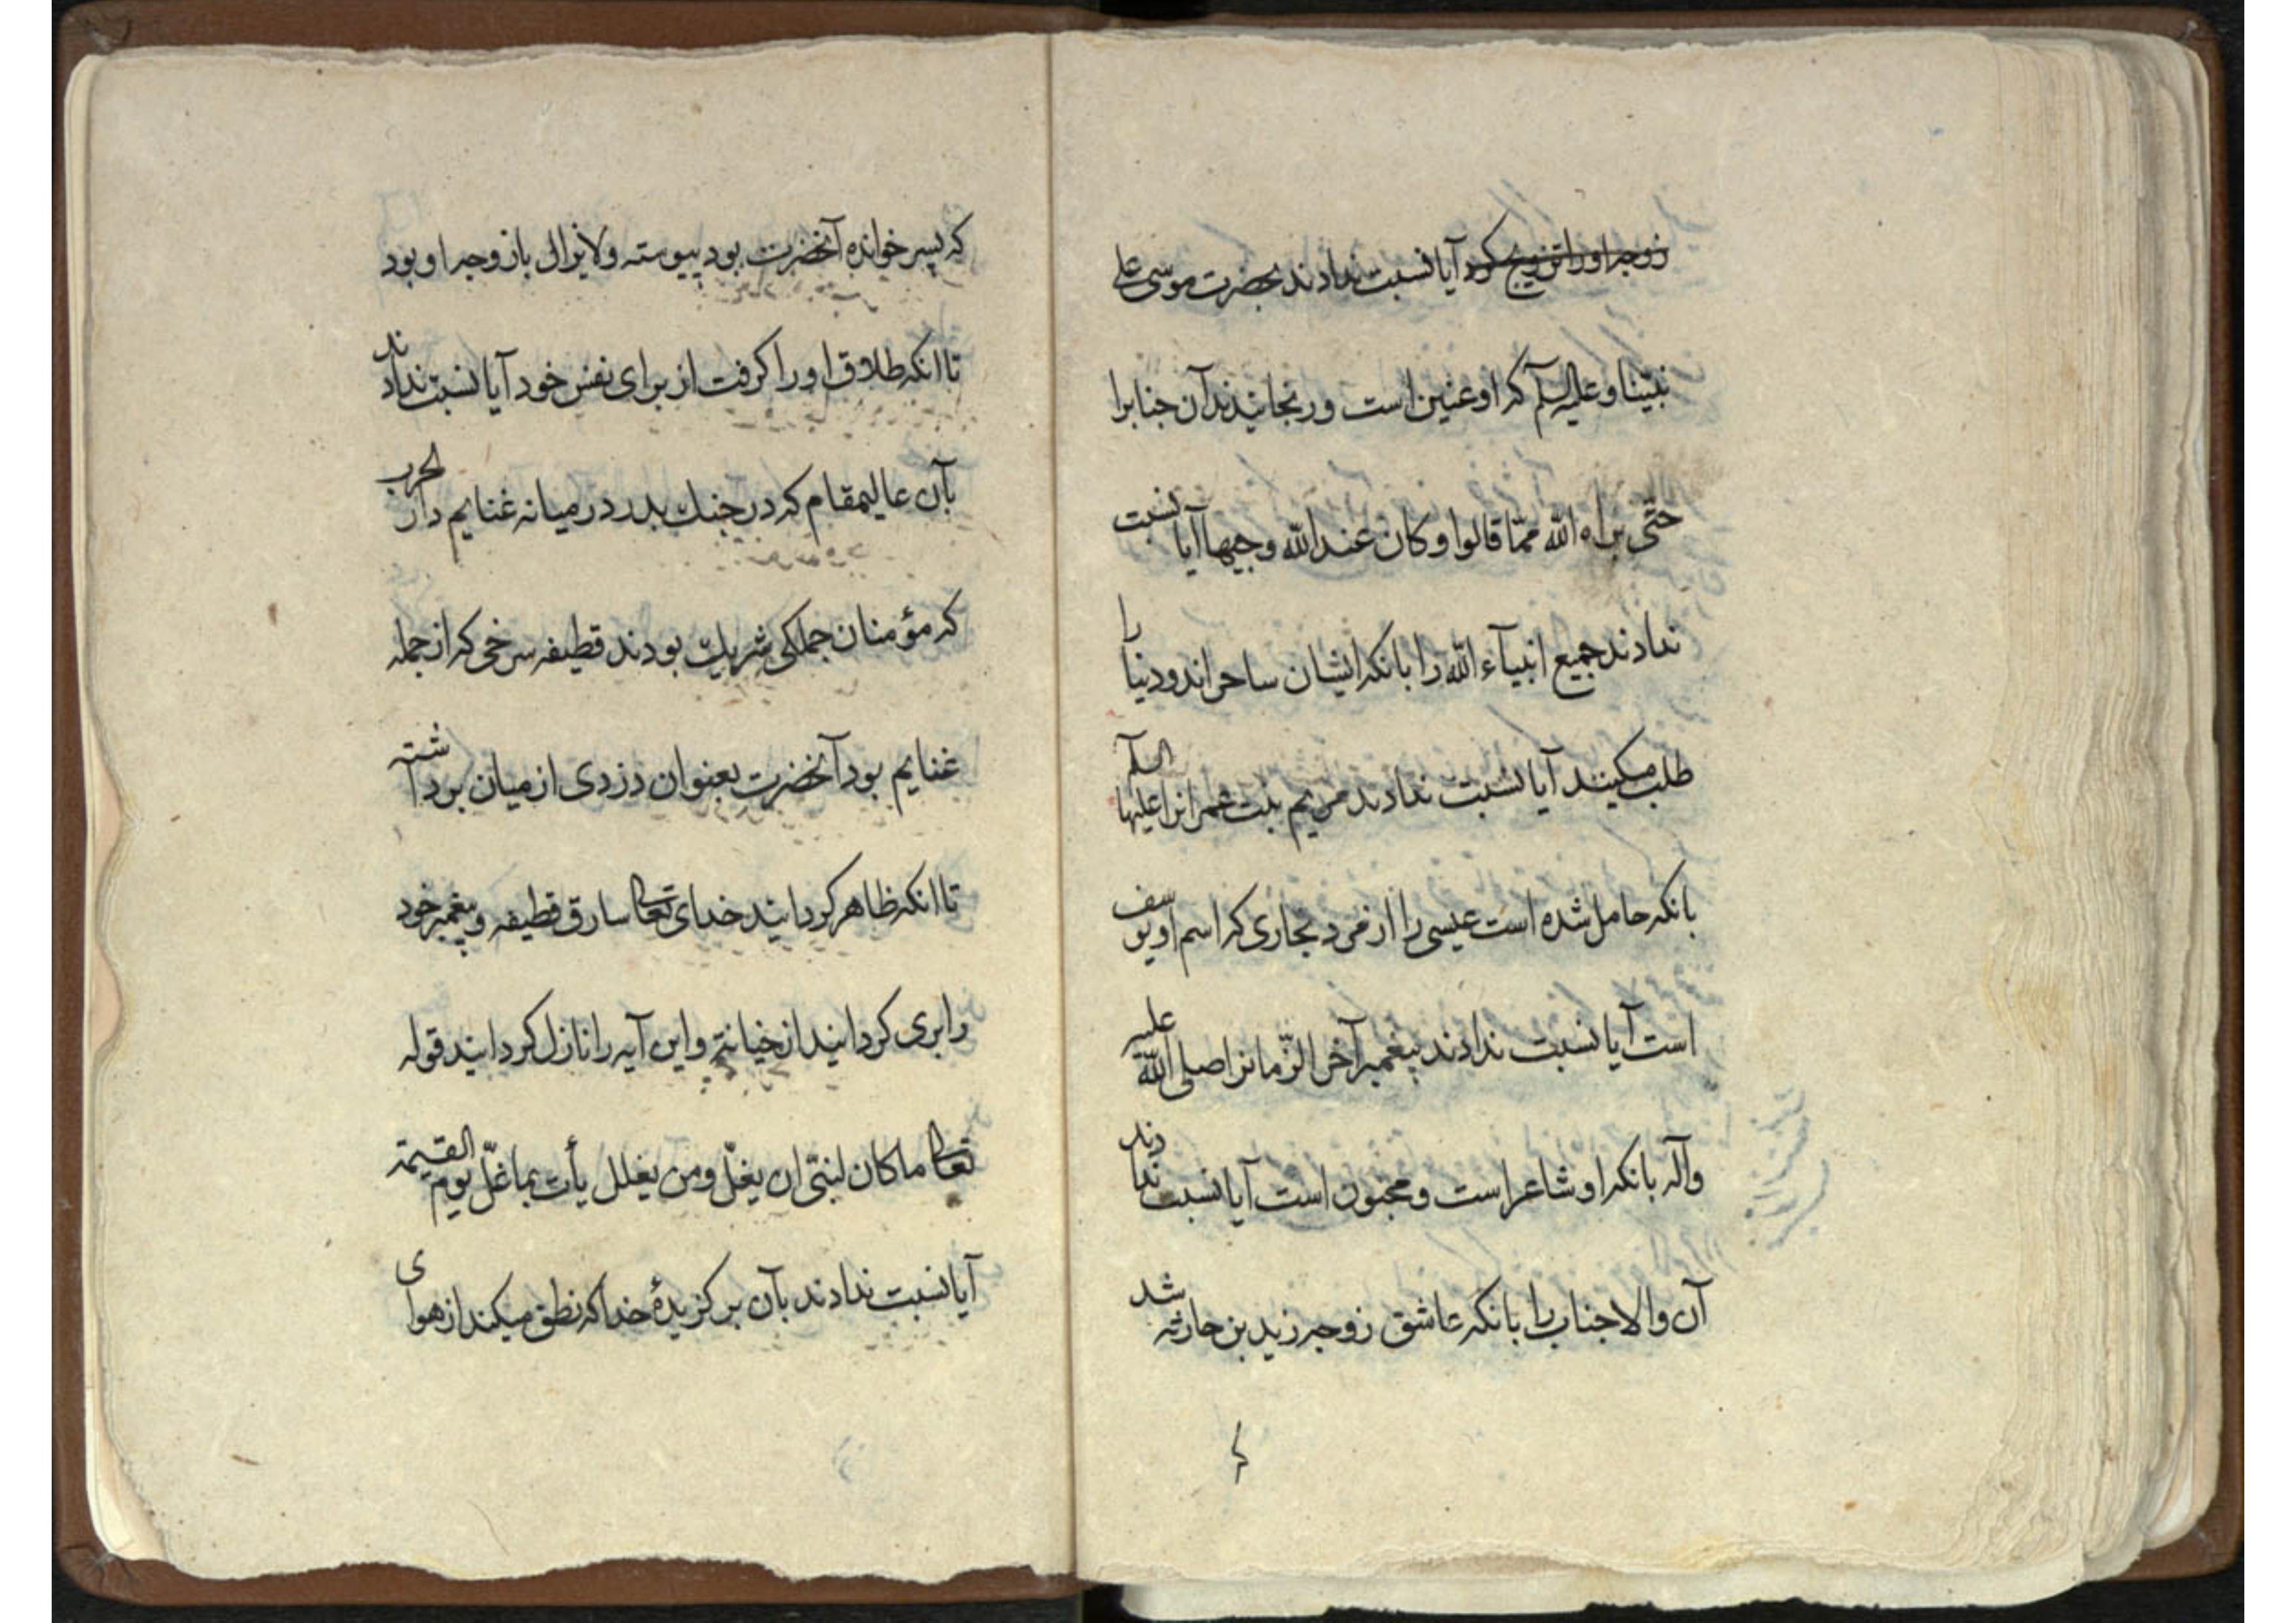 زوجه اورا تزویج کرد آیا نسبت ندادند بحضرت موسی علی
نبیّنا و علیه السلم که او عنین است و رنجانیدند آن جنابرا
حتّی براه اللّه ممّا قالوا و کان عند اللّه وجیها آیا نسبت
ندادند جمیع انبیآء اللّه را بانکه ایشان ساحراند و دنیا را
طلب میکنند آیا نسبت ندادند مریم بنت عمرانرا علیها السلم
بانکه حامل شده است عیسی را از مرد نجاری که اسم او یوسف
است آیا نسبت ندادند پیغمبر آخر الزّمانرا صلی اللّه علیه
وآله بانکه او شاعر است و مجنون است آیا نسبت ندادند
آن والاجناب را بانکه عاشق زوجه زید بن حارثه شد
که
که پسر خوانده آنحضرت بود پیوسته و لایزال باز وجه او بود
تا انکه طلاق او را کرفت از برای نفس خود آیا نسبت ندادند
بآن عالیمقام که در جنك بدر در میانه غنایم دار الحرب
که مؤمنان جملکی شریك بودند قطیفه سرخی که از جمله
غنایم بود آنحضرت بعنوان دزدی از میان برداشته
تا انکه ظاهر کردانید خدای تعالی سارق قطیفه و پیغمبر خود
را بری کردانید از خیانتی و این آیه را نازل کردانید قوله
تعالی ما کان لنبیّ ان یغلّ و من یغلل یأت بما غلّ یوم القیمة
آیا نسبت ندادند بآن برکزیدهٔ خدا که نطق میکند از هوای